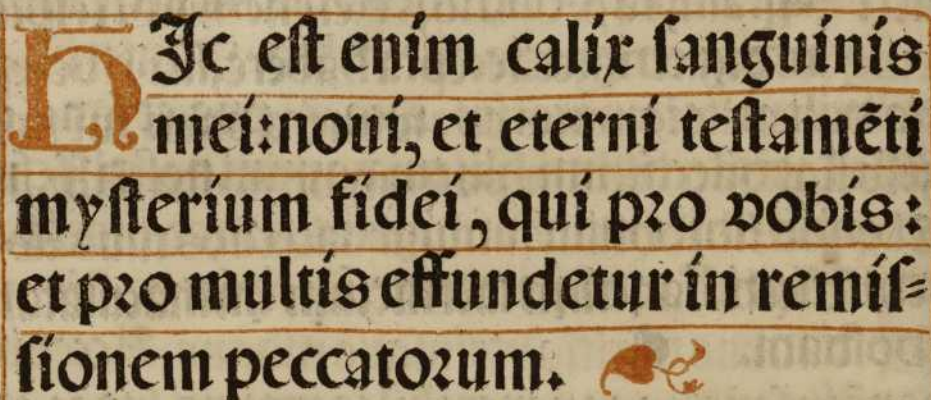 HIc est enim calix sanguinis
mei:noui, et eterni testamẽti
mysterium fidei, qui pro vobis:
et pro multis effundetur in remis=
sionem peccatorum.